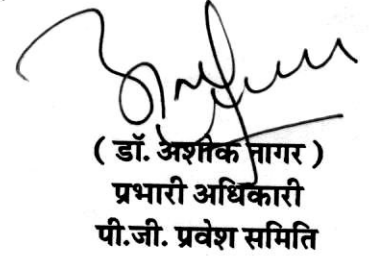 ( डॉ. अशोक नागर )
प्रभारी अधिकारी
पी.जी. प्रवेश समिति